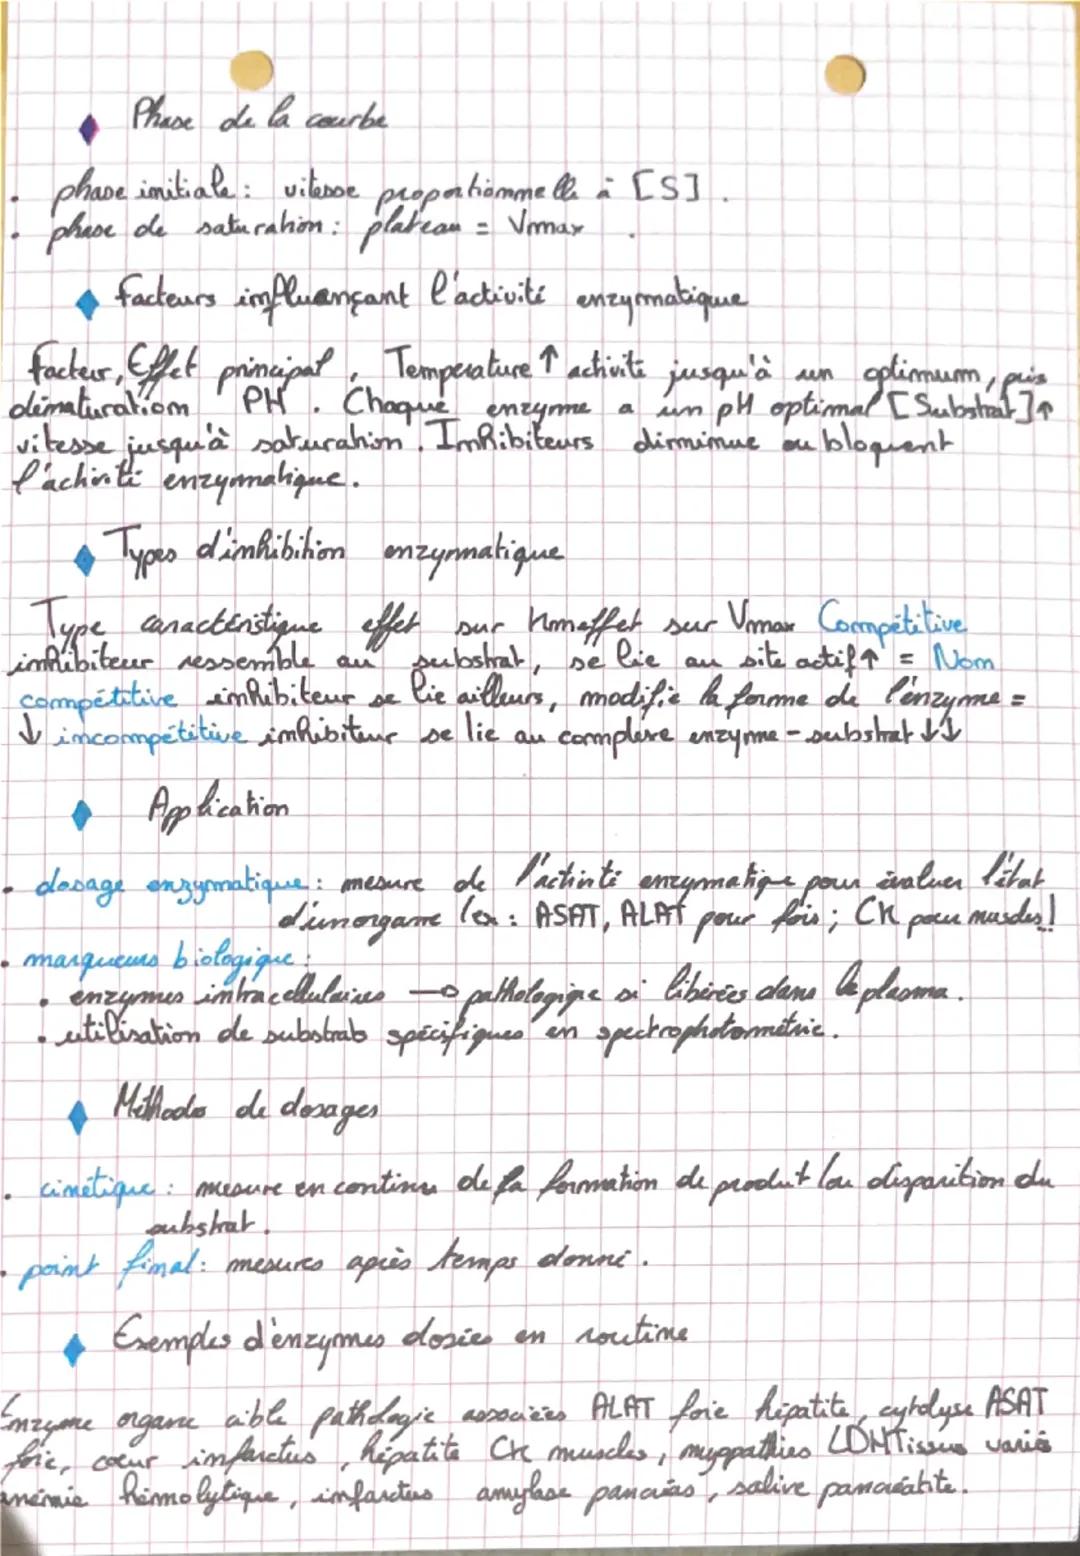 Phase de la courbe
. phase initiale : vitesse proportionnelle à [S].
. phase de saturation : plateau = Vmax.
facteurs influençant l'activité enzymatique
facteur, Effet principal, Temperature ↑ activité jusqu'à un optimum, puis
dénaturation PH. Chaque enzyme a un pH optimal [Substrat]↑
vitesse jusqu'à saturation. Inhibiteurs diminue ou bloquent
l'activité enzymatique.
Types d'inhibition enzymatique
Type caractéristique effet sur Km effet sur Vmax Compétitive
inhibiteur ressemble au substrat, se lie au site actif ↑ = Non
compétitive inhibiteur se lie ailleurs, modifie la forme de l'enzyme =
↓ incompétitive inhibiteur se lie au complexe enzyme - substrat ↓↓
Application
. dosage enzymatique : mesure de l'activité enzymatique pour évaluer l'état
d'un organe (ex : ASAT, ALAT pour foie ; CK pour muscles)
. marqueurs biologique :
. enzymes intracellulaires → pathologique si libérées dans le plasma.
. utilisation de substrats spécifiques en spectrophotométrie.
Méthodes de dosages
. cinétique : mesure en continu de la formation de produit (ou disparition du
substrat.
. point final : mesures après temps donné.
Exemples d'enzymes dosées en routine
Enzyme organe cible pathologie associées ALAT foie hépatite, cytolyse ASAT
foie, cœur infarctus, hépatite CK muscles, myopathies LDH Tissus variés
anémie hémolytique, infarctus amylase pancréas, salive pancréatite.